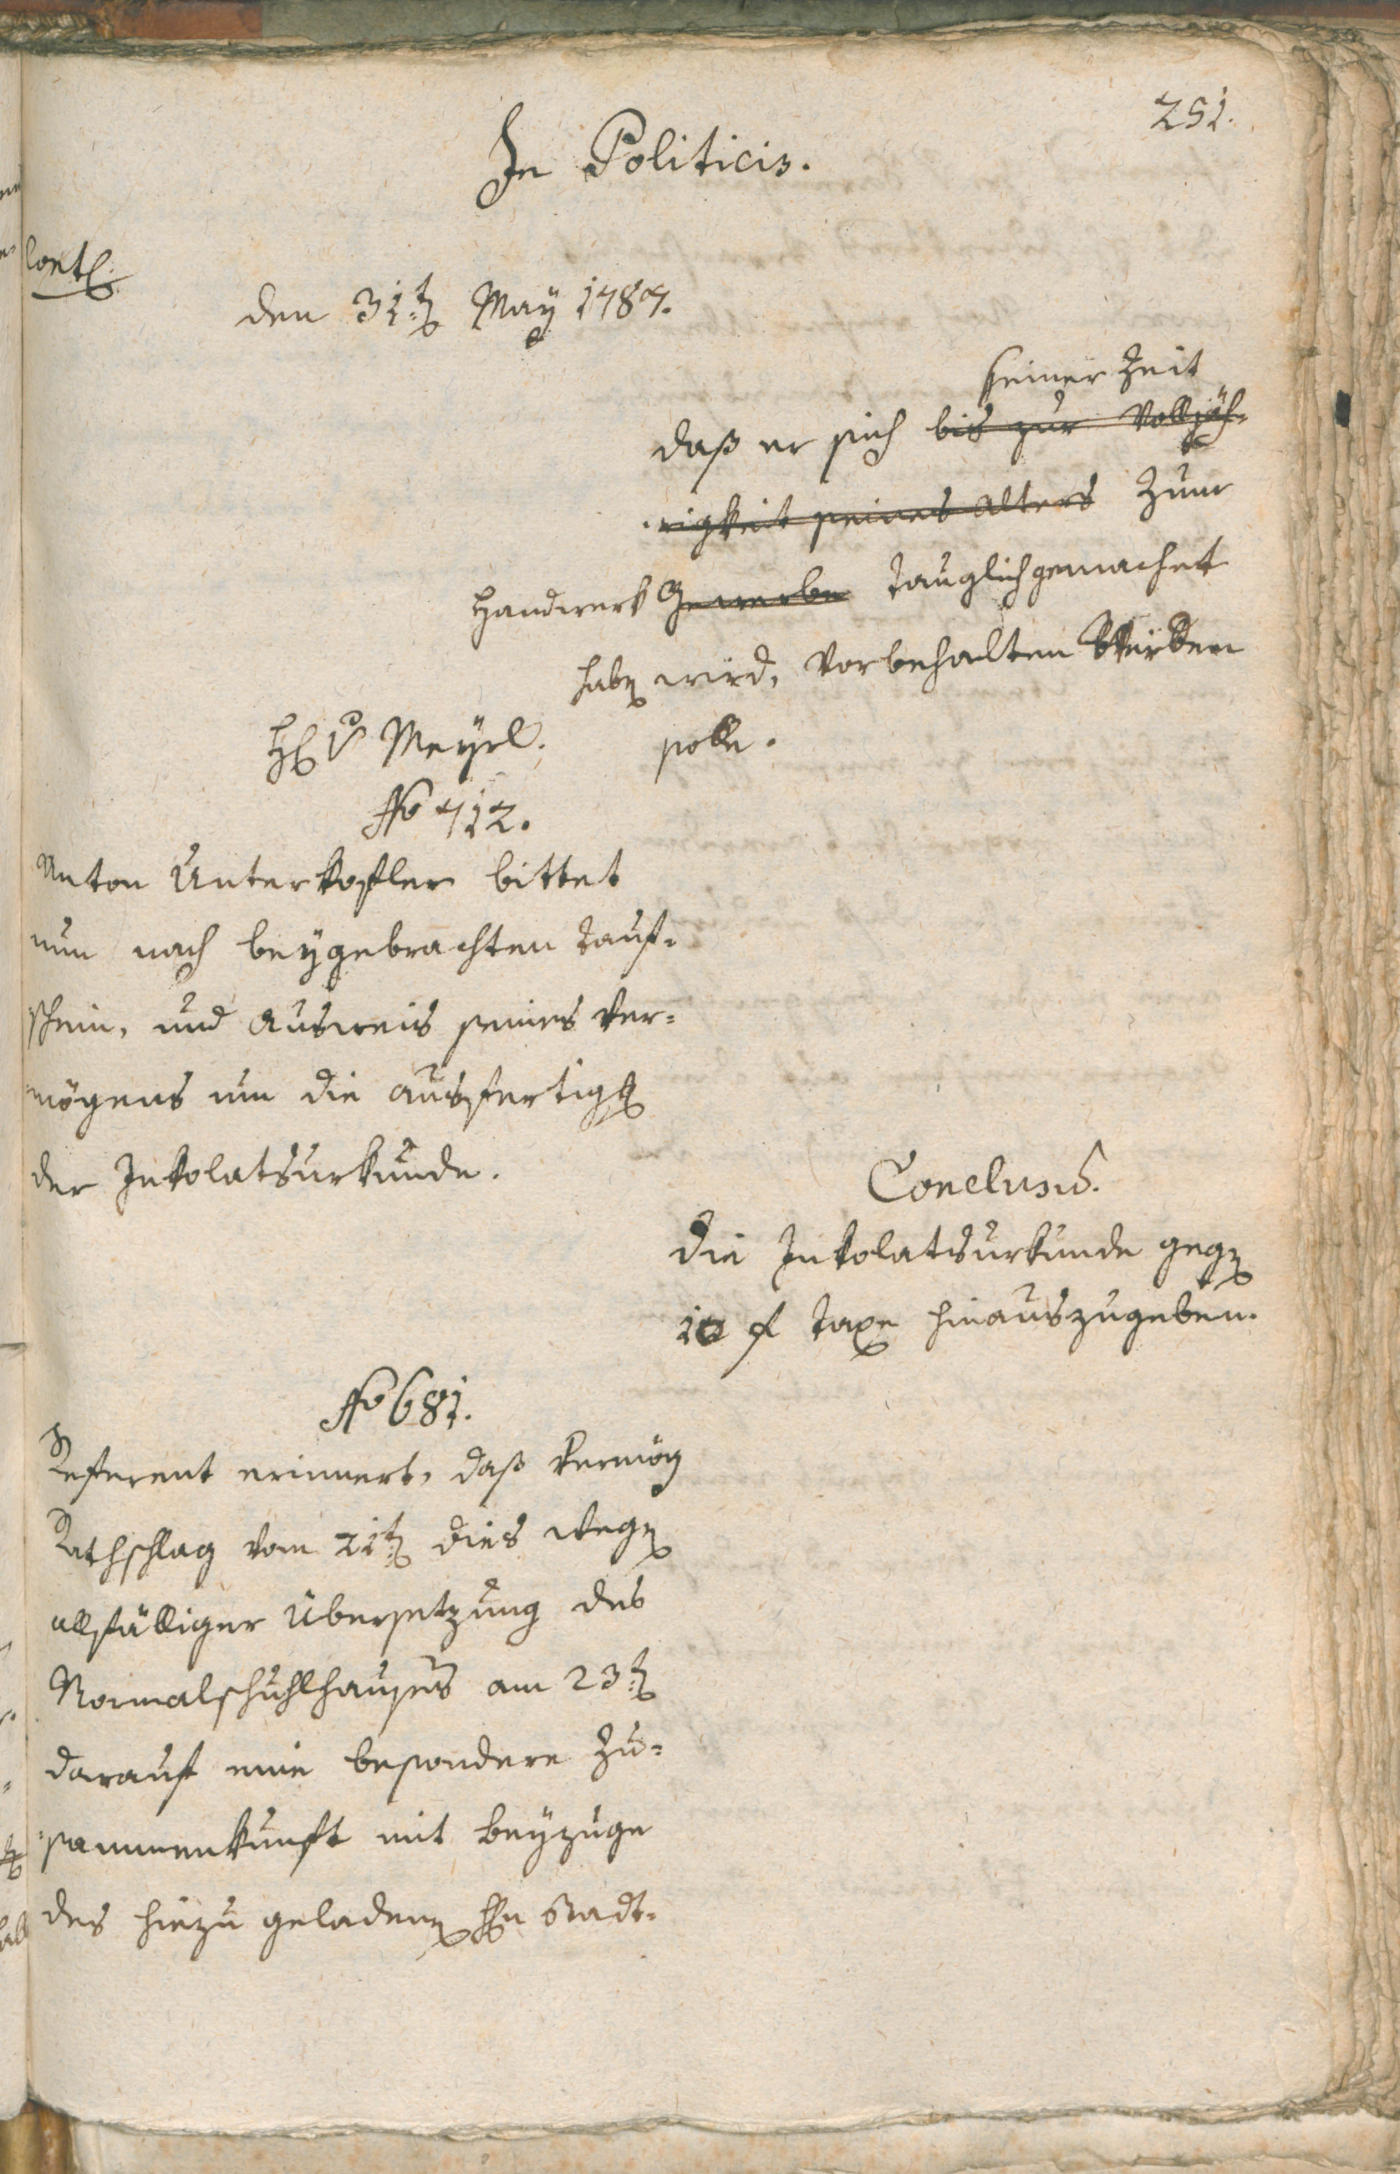 251.
In Politicis.
den 31t: May 1787.
seiner Zeit
daß er sich bis zur Volljäh-
rigkeit seines Alters zum
Handwerk Gewerbe tauglich gemachet
haben wird, vorbehalten werden
solle.
H: v Meyrl.
No 712.
Anton Unterkofler bittet
nun nach beygebrachten Tauf-
schein, und Ausweis seines Ver-
mögens um die Ausfertigung
der Inkolatsurkunde.
Conclusum.
Die Inkolatsurkunde gegen
10 f Taxe hinauszugeben.
No 681.
Referent erinnert, daß vermög
Rathschlag vom 21t: dies wegen
allfälliger Übersetzung des
Normalschuhlhauses am 23t:
darauf eine besondere Zu-
sammenkunft mit Beyzuge
des hiezu geladenen Hn Stadt-